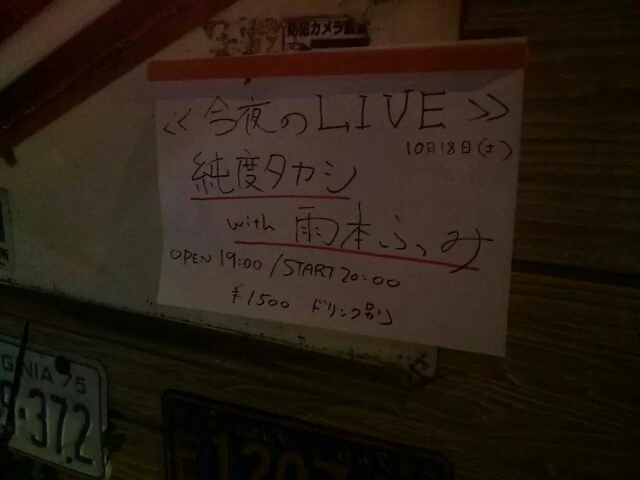 防犯カメラ設置
≪今夜のLIVE≫
10月18日(土)
純度タカシ
with 雨本ふっみ
OPEN 19:00 / START 20:00
¥1500 ドリンク別
GINIA 75
9-372